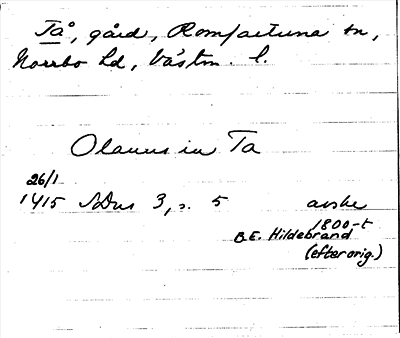 Tå, gård, Romfartuna sn,
Norrbo hd, Västm. l.
Olauus in Ta
26/1
1415 SDns 3, s. 5 avskr
1800-t
B.E. Hildebrand
(efter orig.)